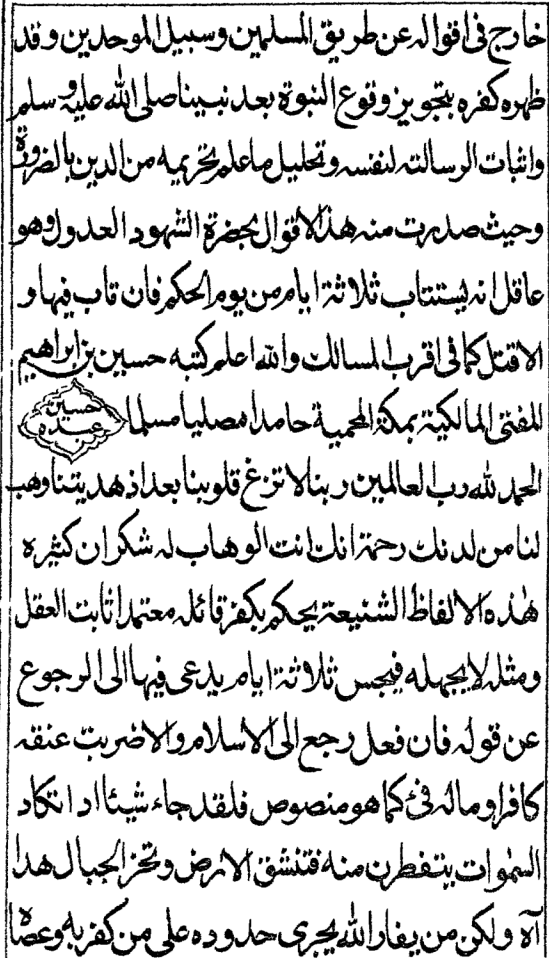 خارج فى اقواله عن طريق المسلمين وسبيل الموحدين وقد
ظهره كفره بتجويز وقوع النبوة بعد نبينا صلى الله عليه وسلم
واثبات الرسالته لنفسه وتحليل ما علم تحريمه من الدين بالضرورة
وحيث صدرت منه هذه الاقوال بحضرة الشهود العدول وهو
عاقل انه يستتاب ثلاثة ايام من يوم الحكم فان تاب فيها و
الاقتل كما فى اقرب المسالك والله اعلم كتبه حسين بن ابراهيم
المفتى المالكية بمكة المحمية حامدا مصليا مسلما حسين عبده
الحمد لله رب العالمين ربنا لا تزغ قلوبنا بعد اذ هديتنا وهب
لنا من لدنك رحمة انك انت الوهاب له شكران كثيره
هٰذه الالفاظ الشنيعة يحكم بكفر قائله معتمدا ثابت العقل
ومثله لا يجهله فيحبس ثلاثة ايام يدعى فيها الى الرجوع
عن قوله فان فعل رجع الى الاسلام والا ضربت عنقه
كافرا وماله فئ كما هو منصوص فلقد جاء شيئا ادا تكاد
السمٰوات يتفطرن منه فتنشق الارض وتخز الجبال هدا
آه ولكن من يفار الله يجرى حدوده على من كفر به وعصاه